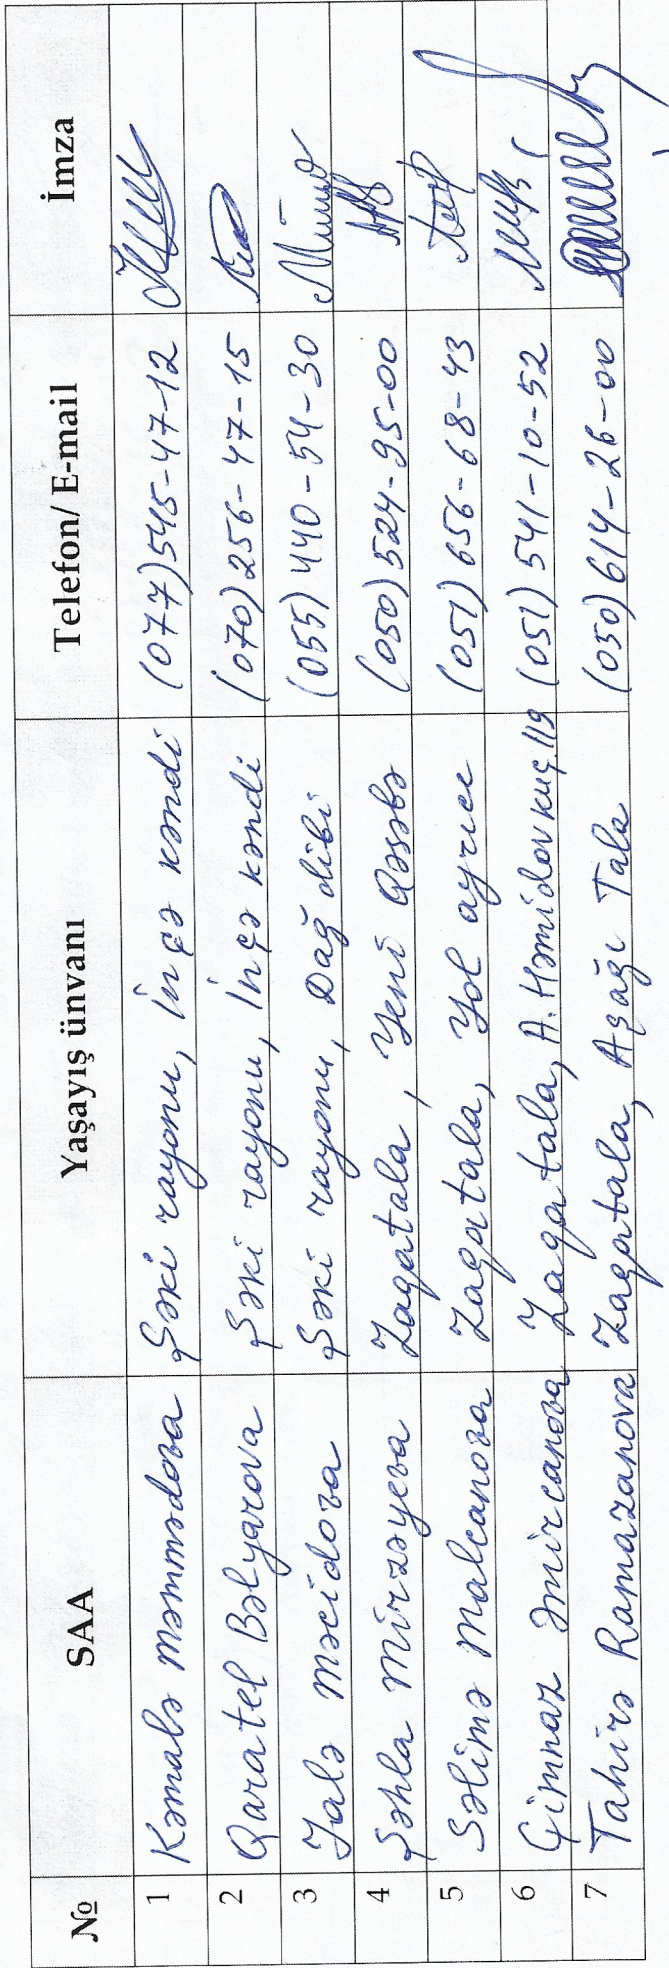 № SAA Yaşayış ünvanı Telefon/ E-mail İmza
1 Kəmalə Məmmədova Şəki rayonu, İnçə kəndi (077)545-47-12
2 Qaratel Bəlyarova Şəki rayonu, İnçə kəndi (070)256-47-15
3 Jalə Məcidova Şəki rayonu, Dağ dibi (055)440-54-30
4 Şəhla Mirzəyeva Zaqatala, Yeni Qəsəbə (050)524-95-00
5 Səlimə Malcanova Zaqatala, Yol ayrıcı (051)656-68-43
6 Çimnaz Əmircanova Zaqatala, A.Həmidov küç.119 (051)541-10-52
7 Tahirə Ramazanova Zaqatala, Aşağı Tala (050)614-26-00